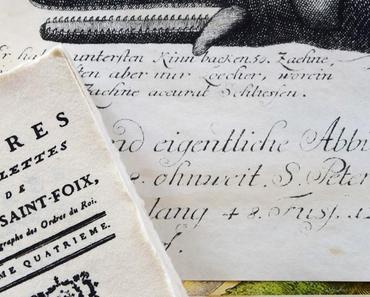 hat untersten Kinn backen 50. Zaehne,
ten aber nur Loecher, worein
Zaehne accurat Schliessen.
nd eigentliche Abbi
8. ohnweit. S. Peter
lang 48. Fusz. 12
f.
RES
LETTES
DE
SAINT-FOIX,
graphe des Ordres du Roi.
ME QUATRIEME.